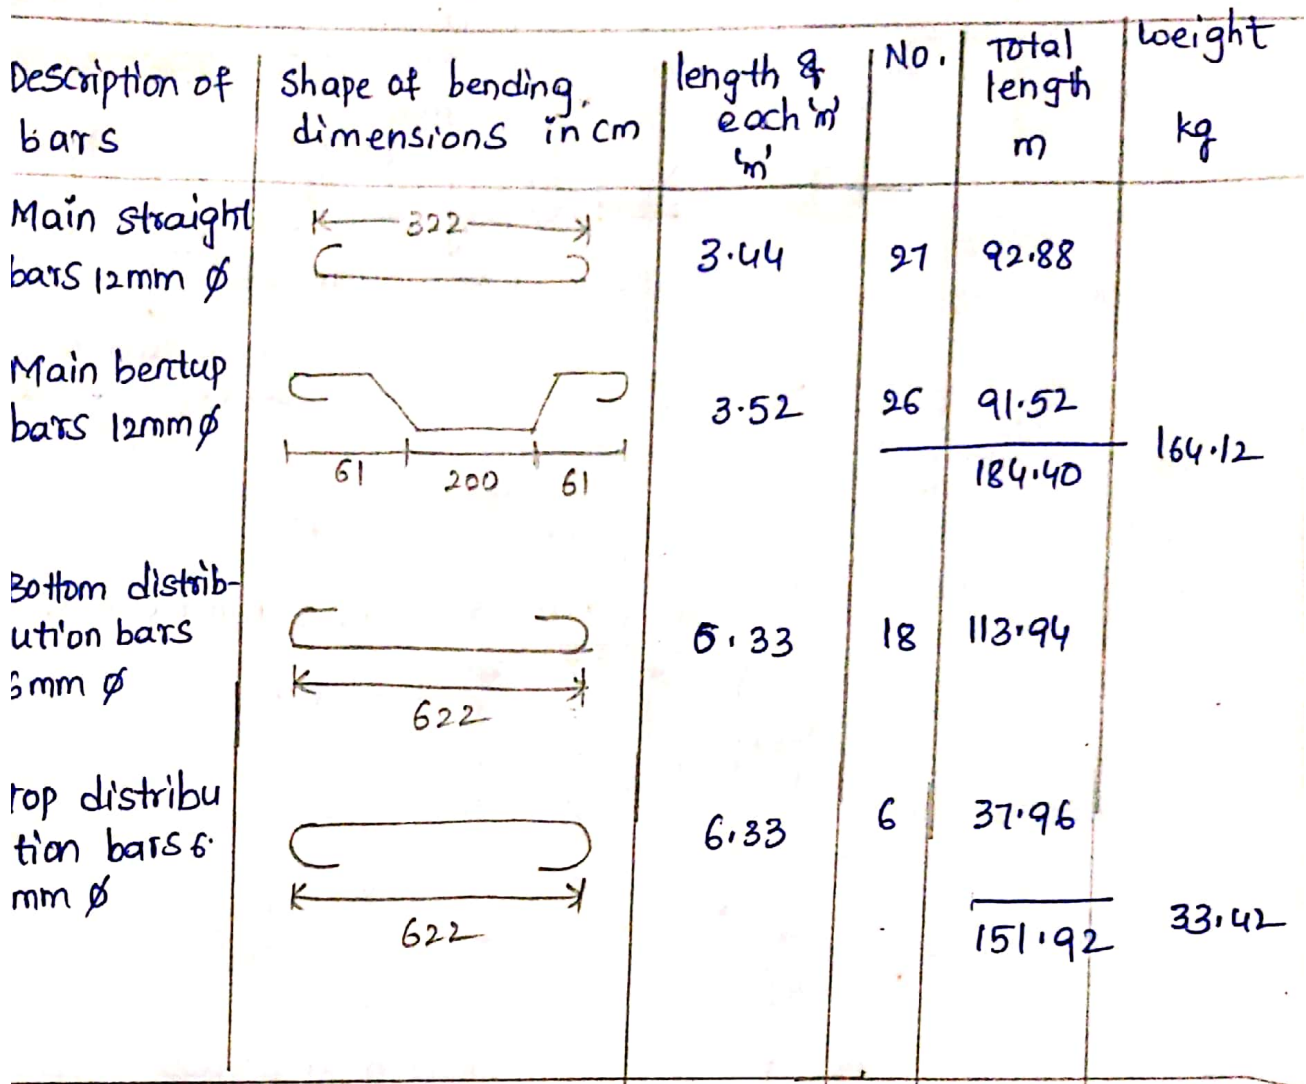 Description of bars | Shape of bending, dimensions in cm | length & each 'm' 'm' | No. | Total length m | weight kg
Main straight bars 12mm ϕ | 322 | 3.44 | 27 | 92.88
Main bentup bars 12mm ϕ | 61 200 61 | 3.52 | 26 | 91.52
184.40 | 164.12
Bottom distrib-ution bars 6mm ϕ | 622 | 6.33 | 18 | 113.94
top distribu tion bars 6 mm ϕ | 622 | 6.33 | 6 | 37.96
151.92 | 33.42